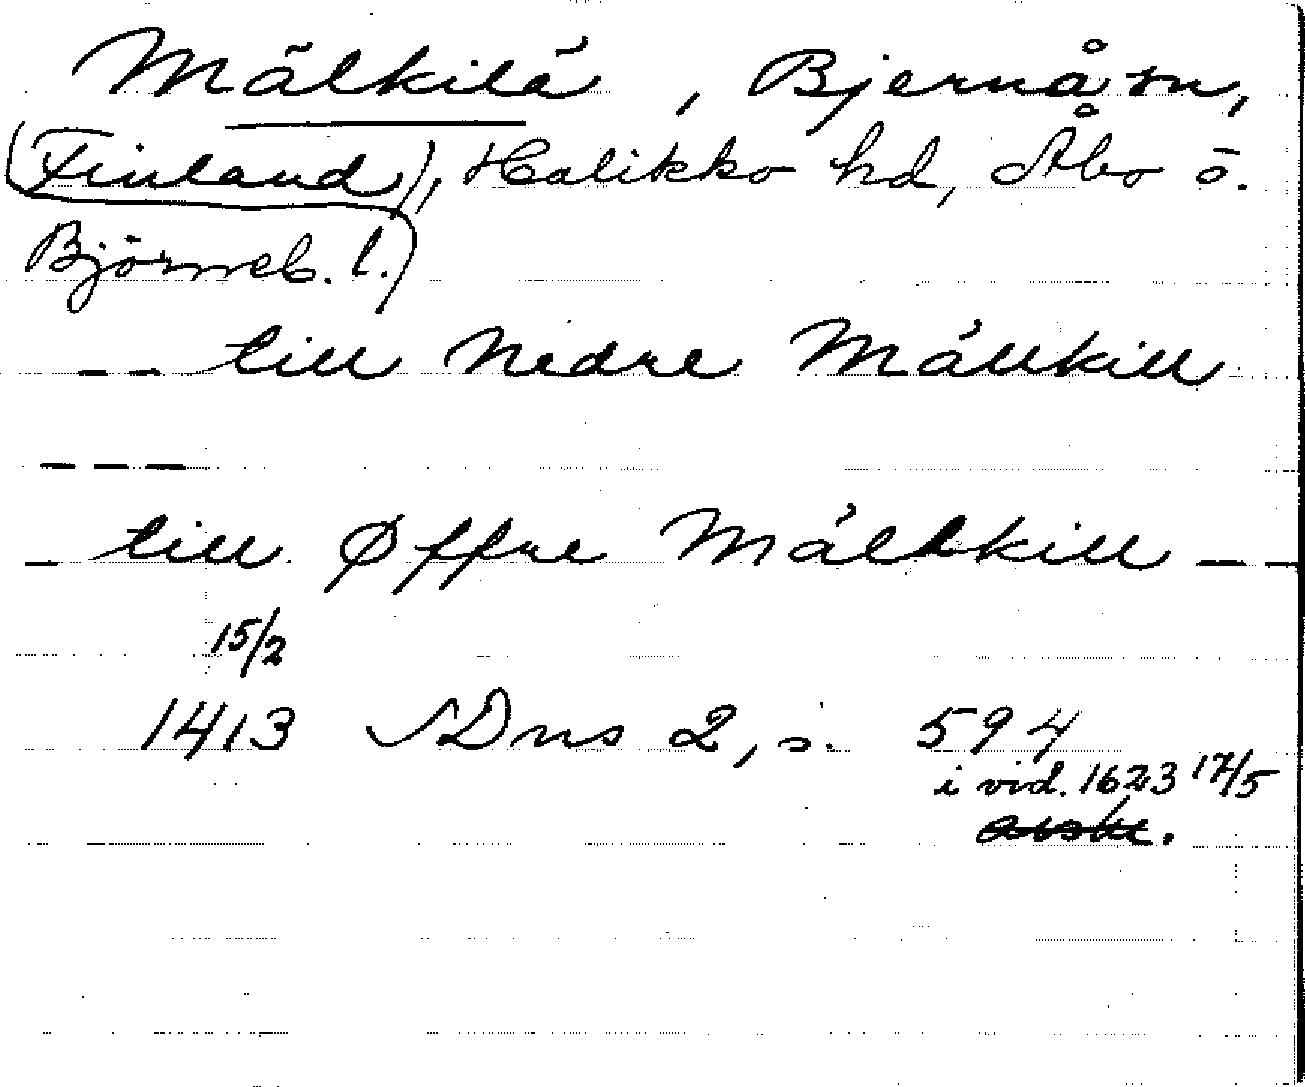 Mälkilä, Bjernå sn,
(Finland), Halikko hd, Åbo ö.
Björneb. l.)
-- till Nedre Mállkill
---
- till Øffre Mállkill --
15/2
1413 SDns 2, s. 594
i vid. 1623 17/5
avskr.